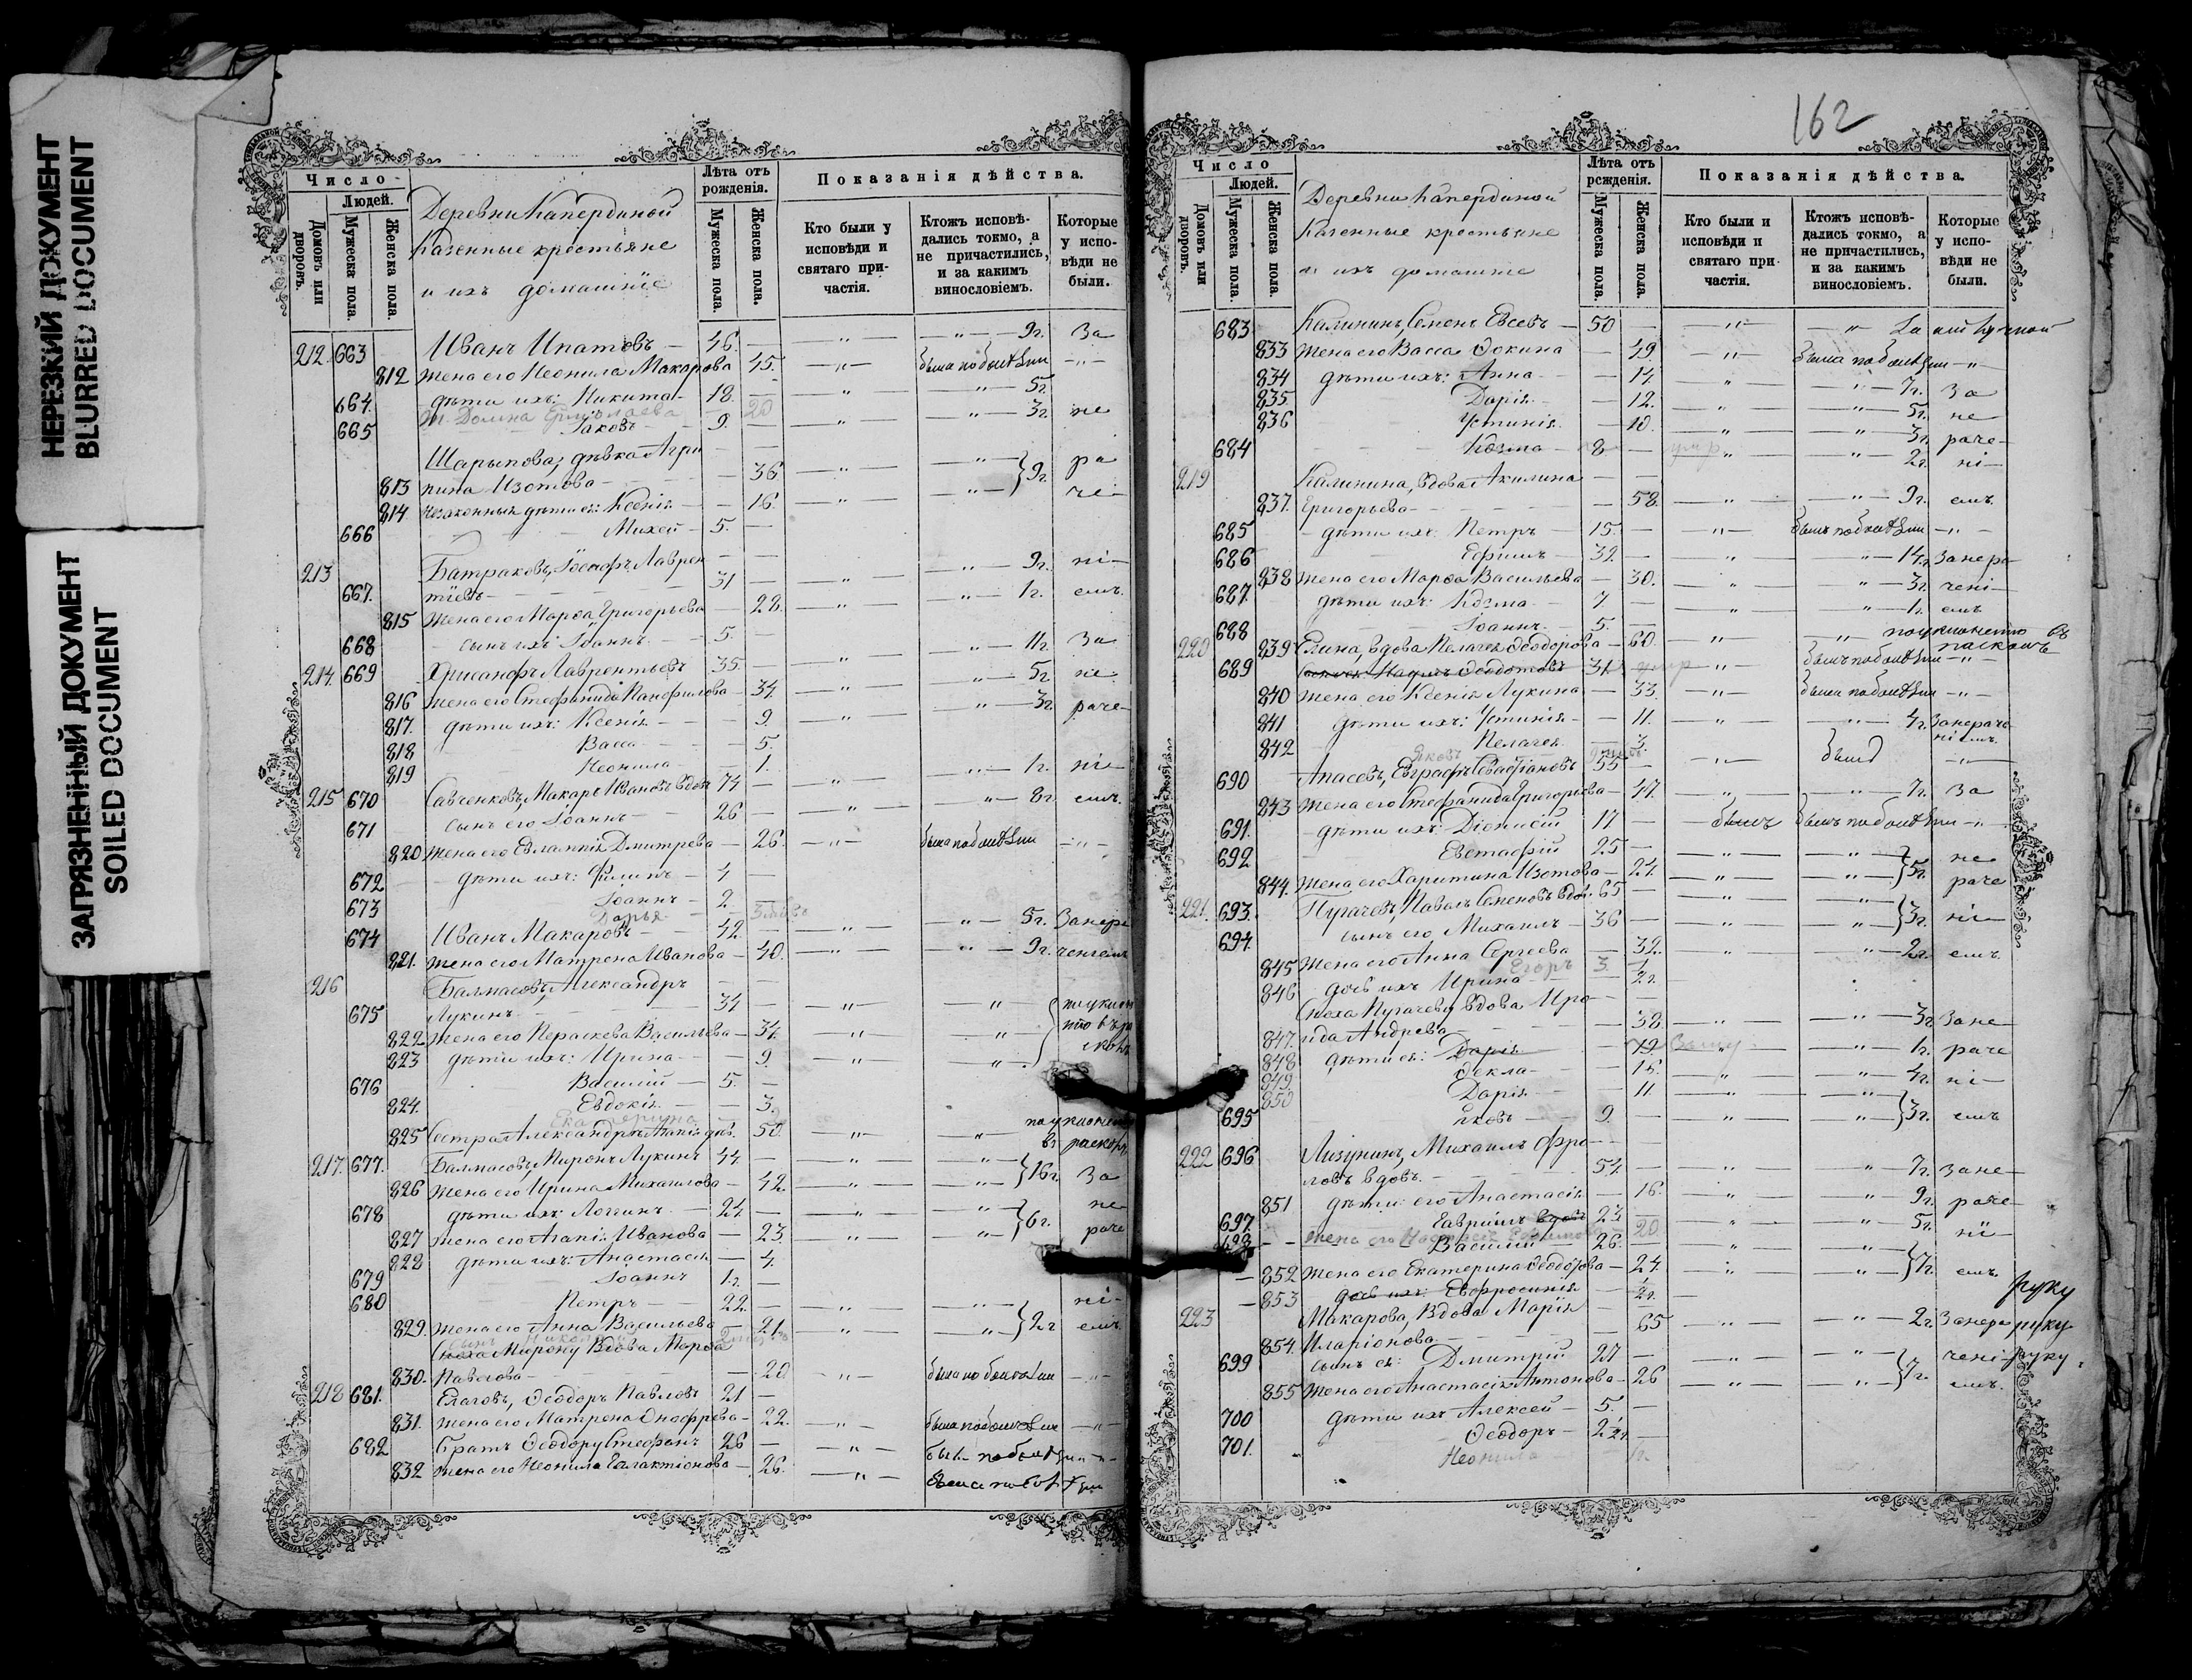 НЕРЕЗКИЙ ДОКУМЕНТ
BLURRED DOCUMENT
ЗАГРЯЗНЕННЫЙ ДОКУМЕНТ
SOILED DOCUMENT
Число
Людей.
Домовъ или дворовъ.
Мужеска пола.
Женска пола.
Деревни Капердиной
Казенные крестьяне
и ихъ домашніе
Лѣта отъ рожденія.
Мужеска пола.
Женска пола.
Показанія дѣйства.
Кто были у исповѣди и святаго причастія.
Ктожъ исповѣдались токмо, а не причастились, и за какимъ винословіемъ.
Которые у исповѣди не были.
212. 663 Иванъ Ипатовъ 46. 9г. За
812 жена его Неонила Макарова 45. была по болѣзни
664. дѣти ихъ: Никита 18. 5г.
665 Іаковъ 9. 3г. не
Шарыпова, дѣвка Агри
813 пина Изотова 36 9г. ра
814. незаконныя дѣти ея: Ксенія 16. че
666 Михей 5.
213 Батраковъ, Іосифъ Лаврен
667. тіевъ 31 9г. ні
815 жена его Марѳа Григорьева 28. 1г. емъ.
668 сынъ ихъ Іоаннъ 5.
214. 669 Хрисанфъ Лаврентьевъ 35. 11г. За
816 жена его Стефанида Панфилова 34. 5г. не
817. дѣти ихъ: Ксенія 9. 3г. раче
818 Васса 5.
819 Неонила 1.
215 670 Савченковъ, Макаръ Ивановъ вдов 74 1г. ні
671 сынъ его Іоаннъ 26 8г. емъ.
820 жена его Евлампія Дмитрева 26. была по болѣзни
672 дѣти ихъ: Филипъ 4
673 Іоаннъ 2.
Дарья
674 Иванъ Макаровъ 42 5г. Занера
821. жена его Матрона Иванова 40. 9г. ченіемъ
216 Балмасовъ, Александръ
675 Лукинъ 34
822 жена его Параскева Васильева 34.
823 дѣти ихъ: Ирина 9.
676 Василій 5.
824. Евдокія 3.
825 Сестра Александръ Агапія дѣв. 50.
217. 677. Балмасовъ, Миронъ Лукинъ 44. 16г. За
826 жена его Ирина Михаилова 42.
678 дѣти ихъ: Логинъ 24. 6г. не
827 жена его Агапія Иванова 23. раче
828 дѣти ихъ: Анастасія 4.
679 Іоаннъ 1г.
680 Петръ 22. 2г. ні
829 жена его Анна Васильева 21. емъ.
Сноха Мирону Вдова Марѳа
830. Павлова 20 была по болѣзни
218 681. Елаговъ, Ѳеодоръ Павловъ 21
831. жена его Матрона Онофрева 22. была по болѣзни
682 Братъ Ѳеодору Стефанъ 26 былъ по болѣзни
832 жена его Неонила Галактіонова 26. была по болѣзни
162
Число
Людей.
Домовъ или дворовъ.
Мужеска пола.
Женска пола.
Деревни Капердиной
Казенные крестьяне
и ихъ домашніе
Лѣта отъ рожденія.
Мужеска пола.
Женска пола.
Показанія дѣйства.
Кто были и исповѣди и святаго причастія.
Ктожъ исповѣдались токмо, а не причастились, и за какимъ винословіемъ.
Которые у исповѣди не были.
683 Калининъ, Семенъ Евсевъ 50 За отлучкой
833 жена его Васса Фокина 49. была по болѣзни
834 дѣти ихъ: Анна 14. 7г. За
835 Дарія 12. 5г. не
836 Устинія 10. 3г. раче
684 Козма 8 умр 2г. ні
219 Калинина, вдова Акилина
837. Григорьева 58. 9г. емъ.
685 дѣти ихъ: Петръ 15. былъ по болѣзни
686 Ефимъ 32. 14г. Занера
838 жена его Марѳа Васильева 30. 3г. чені
687. дѣти ихъ: Козма 7 1г. емъ
688 Іоаннъ 5.
220 839 Елина, вдова Пелагея Ѳеодорова 60. по уклоненію въ расколъ
689 Ѳеодотовъ 31. умр былъ по болѣзни
840 жена его Ксенія Лукина 33. была по болѣзни
841 дѣти ихъ: Устинія 11. 4г. Занераче
842 Пелагея 3. ніемъ.
Яковъ
690 Апасовъ, Евграфъ Севастіановъ 55 былъ
843 жена его Стефанида Григорьева 47. 7г. За
691. дѣти ихъ: Діонисій 17 былъ былъ по болѣзни
692 Евстафій 25 5г. не
844. жена его Харитина Изотова 24. раче
221. 693. Пугачевъ, Павелъ Семеновъ вдов. 65 3г. ні
694. сынъ его Михаилъ 36
845 жена его Анна Сергеева 32. 2г. емъ.
Егоръ 3.
846 дочь ихъ Ирина
Сноха Пугачеву вдова Иро
847. ида Андрева 38. 3г. Зане
848 дѣти ея: Дарія 19. 1г. раче
849 Ѳекла 16. 4г. ні
850 Дарія 11
695 Яковъ 9. 3г. емъ
222 696 Лизунинъ, Михаилъ Фро
ловъ вдовъ. 54. 7г. Зане
851 дѣти его Анастасія 16. 9г. раче
697. Гавріилъ вдовъ 23 5г. ні
698 Василій 26.
852 жена его Екатерина Ѳеодорова 24. 7г. емъ.
853 дочь ихъ: Евфросинія
руку
223 Макарова, Вдова Марія
854. Иларіонова 65 2г. Занера руку
699 сынъ ея: Дмитрій 27 чені руку
855 жена его Анастасія Антонова 26 7г. емъ.
700 дѣти ихъ Алексей 5.
701. Ѳеодоръ
Неонила